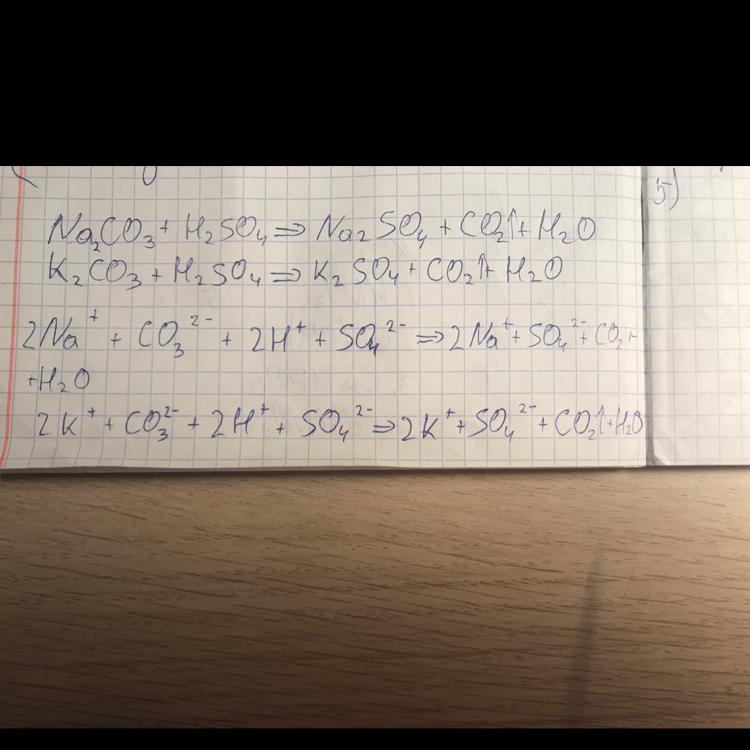 5)
Na₂CO₃ + H₂SO₄ ⇒ Na₂SO₄ + CO₂↑ + H₂O
K₂CO₃ + H₂SO₄ ⇒ K₂SO₄ + CO₂↑ + H₂O
2Na⁺ + CO₃²⁻ + 2H⁺ + SO₄²⁻ ⇒ 2Na⁺ + SO₄²⁻ + CO₂ +
+ H₂O
2K⁺ + CO₃²⁻ + 2H⁺ + SO₄²⁻ ⇒ 2K⁺ + SO₄²⁻ + CO₂↑ + H₂O